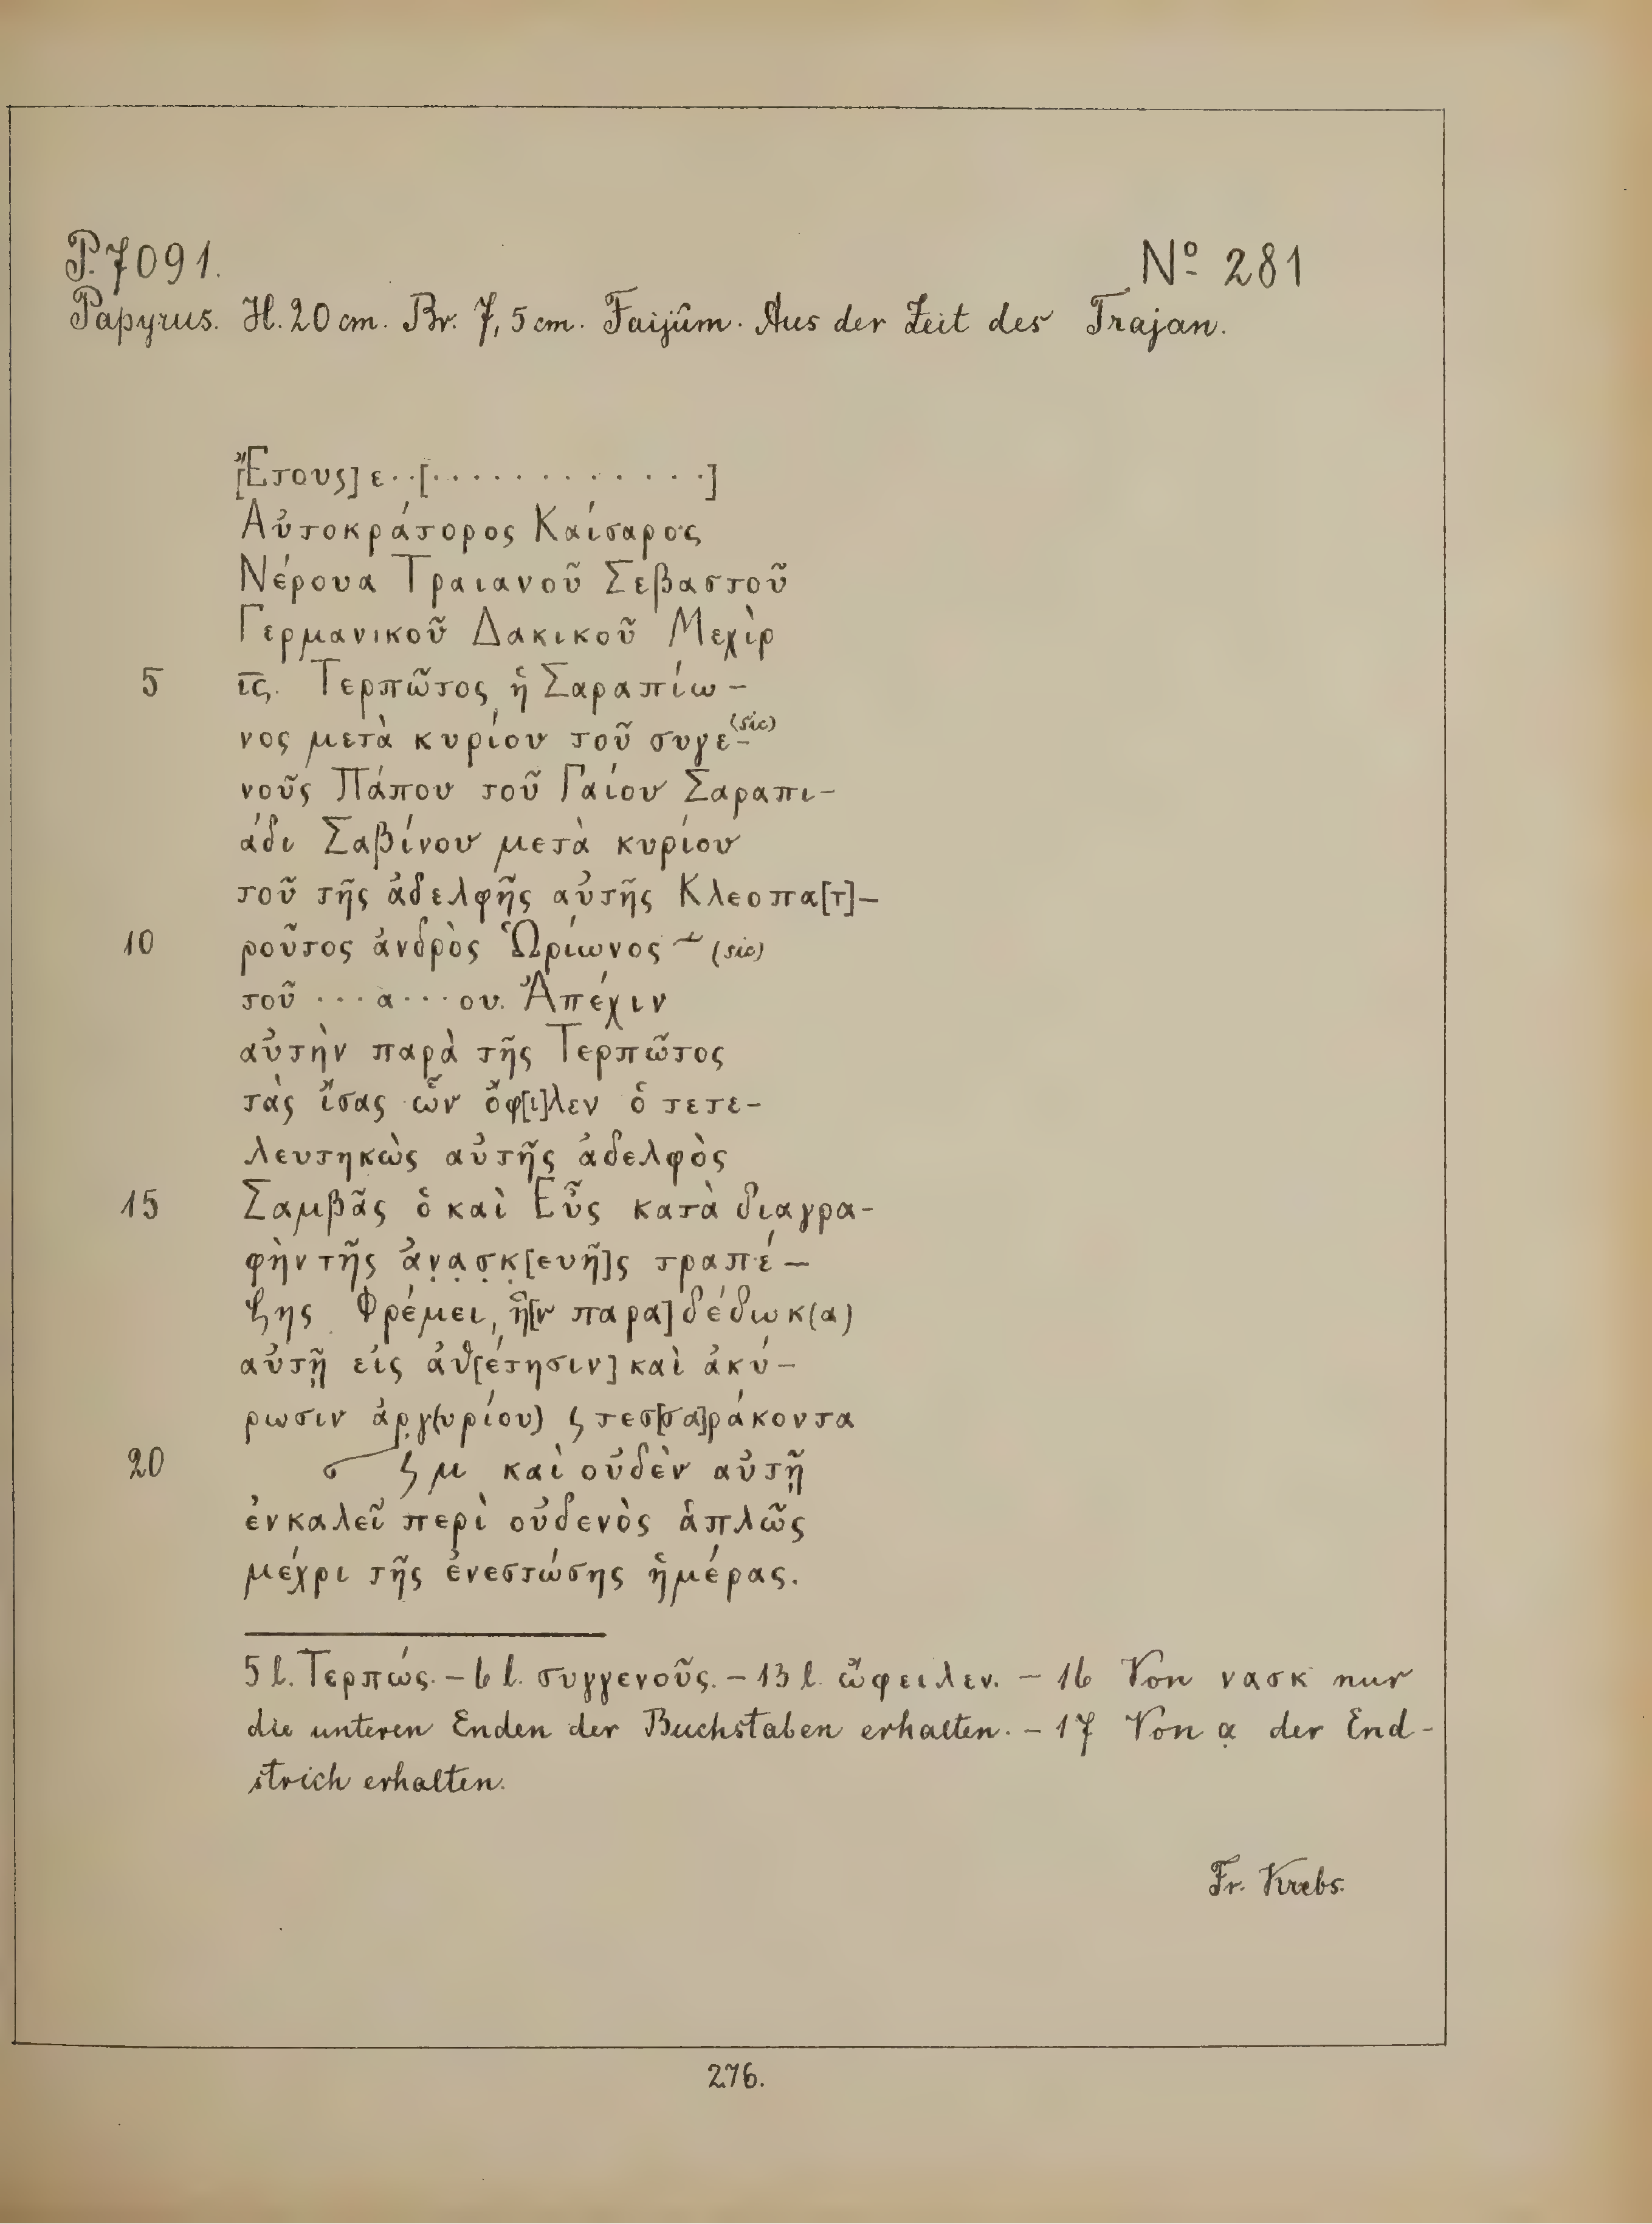 P. 7091. Nº 281
Papyrus. H. 20 cm. Br. 7,5 cm. Faijûm. Aus der Zeit des Trajan.
[Ἔτους] ε··[············]
Αὐτοκράτορος Καίσαρος
Νέρουα Τραιανοῦ Σεβαστοῦ
Γερμανικοῦ Δακικοῦ Μεχὶρ
5 ι̅ς̅. Τερπῶτος ἡ Σαραπίω-
νος μετὰ κυρίου τοῦ συγε-(sic)
νοῦς Πάπου τοῦ Γαίου Σαραπι-
άδι Σαβίνου μετὰ κυρίου
τοῦ τῆς ἀδελφῆς αὐτῆς Κλεοπα[τ]-
10 ροῦτος ἀνδρὸς Ὡρίωνος ~ (sic)
τοῦ ···α···ου. Ἀπέχιν
αὐτὴν παρὰ τῆς Τερπῶτος
τὰς ἴσας ὧν ὄφ[ι]λεν ὁ τετε-
λευτηκὼς αὐτῆς ἀδελφὸς
15 Σαμβᾶς ὁ καὶ Εὖς κατὰ διαγρα-
φὴν τῆς ἀν̣α̣σ̣κ̣[ευῆ]ς τραπέ-
ζης Φρέμει, ἣ[ν παρα]δέδωκ(α)
αὐτῇ εἰς ἀθ[έτησιν] καὶ ἀκύ-
ρωσιν ἀρ̣γ(υρίου) ʕ τεσ[σα]ράκοντα
20 σ ʕ μ καὶ οὐδὲν αὐτῇ
ἐνκαλεῖ περὶ οὐδενὸς ἁπλῶς
μέχρι τῆς ἐνεστώσης ἡμέρας.
5 l. Τερπώς. – 6 l. συγγενοῦς. – 13 l. ὤφειλεν. – 16 Von νασκ nur
die unteren Enden der Buchstaben erhalten. – 17 Von α̣ der End-
strich erhalten.
Fr. Krebs.
276.